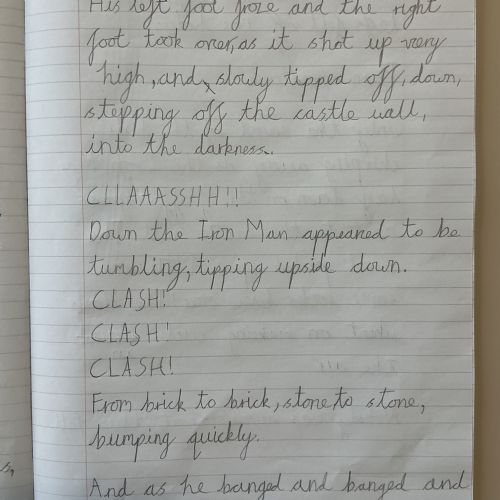 His left foot froze and the right
foot took over, as it shot up very
high, and slowly tipped off, down,
stepping off the castle wall,
into the darkness..
CLLAAASSHH!!
Down the Iron Man appeared to be
tumbling, tipping upside down.
CLASH!
CLASH!
CLASH!
From brick to brick, stone to stone,
bumping quickly.
And as he banged and banged and